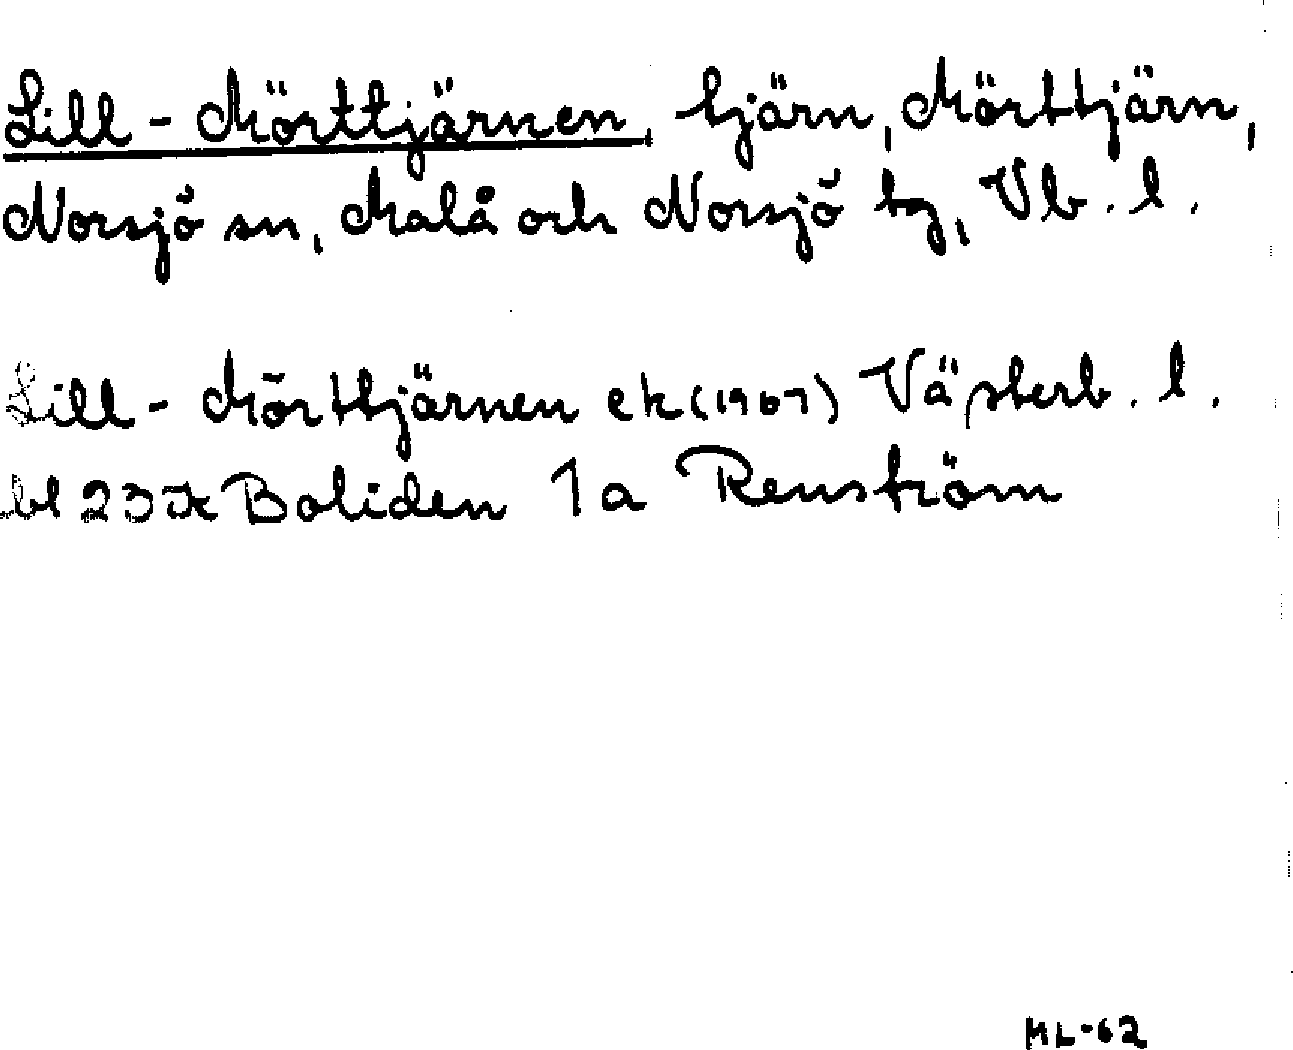 Lill-Mörttjärnen, tjärn, Mörttjärn,
Norsjö sn, Malå och Norsjö tg, Vb. l.
Lill-Mörttjärnen ek (1967) Västerb. l.
bl 23 K Boliden 1a Renström
ML-62